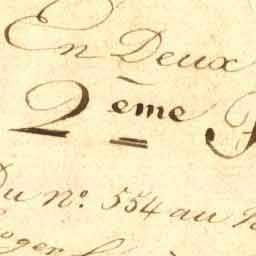 En Deux
2ème
Du nº. 554 au